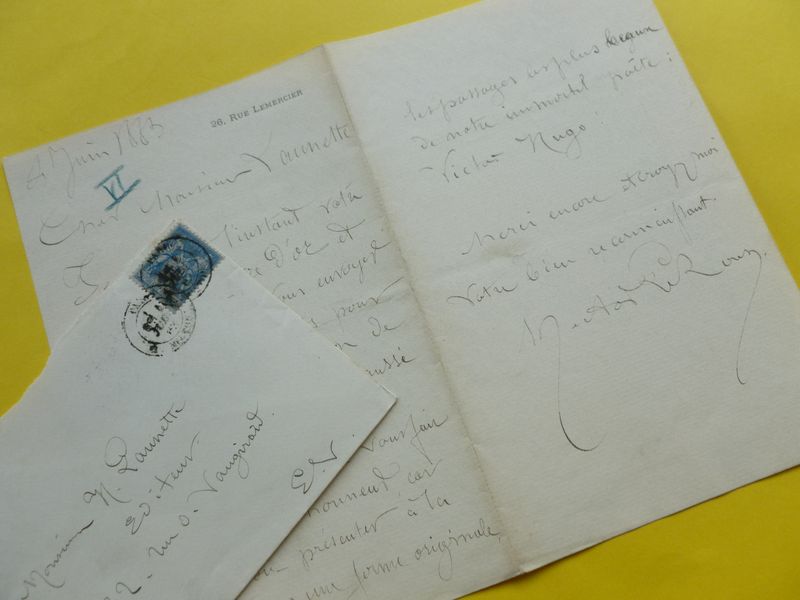 26, RUE LEMERCIER
4 Juin 1883
VI
Cher Monsieur Launette
l'instant votre
d'or et
envoyer
pour
de
Vous fair
honneur car
présenter à la
une forme originale,
les passages les plus
de notre immortel poëte :
Victor Hugo !
Merci encore et croyez moi
Votre bien reconnaissant.
Hector Le Roux
Monsieur H. Launette
Editeur
22 - rue de Vaugirard
E.V.